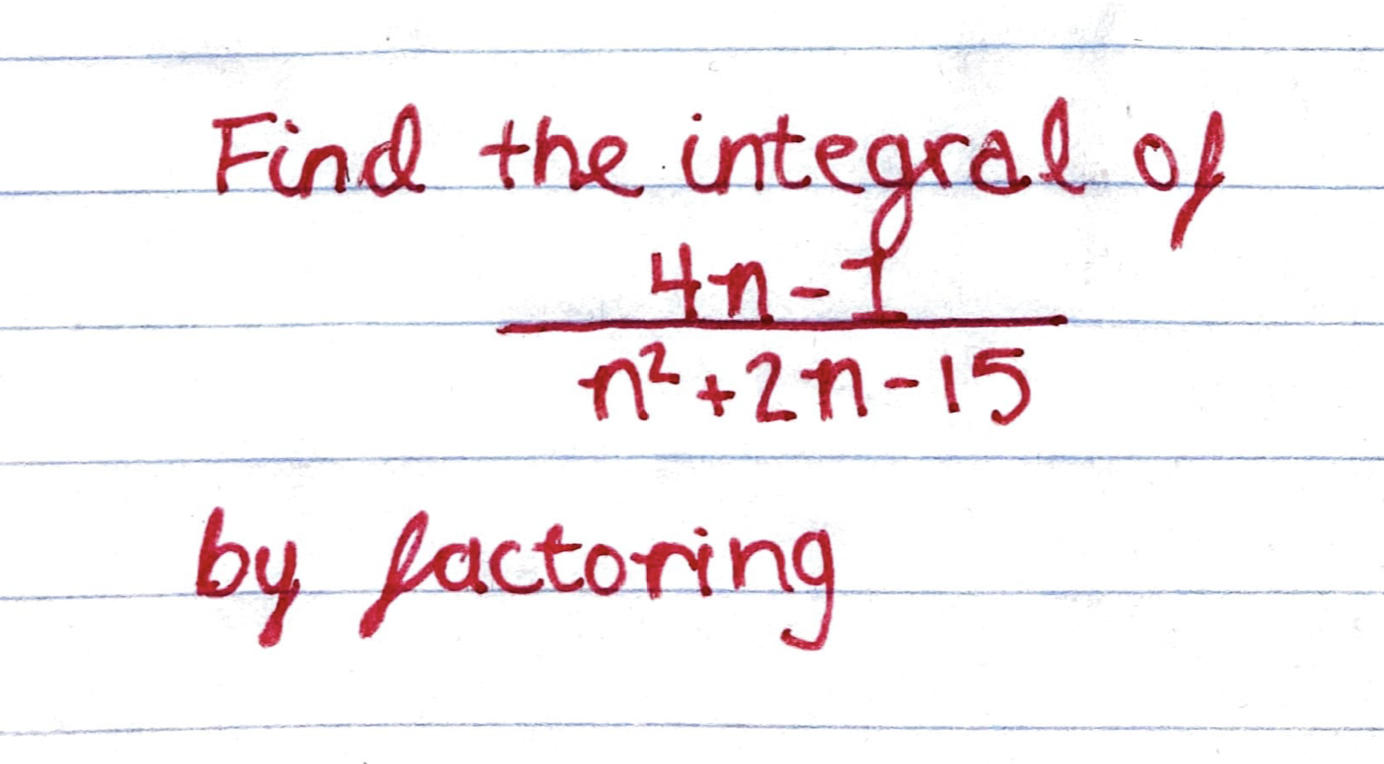 Find the integral of
4n-1
n²+2n-15
by factoring